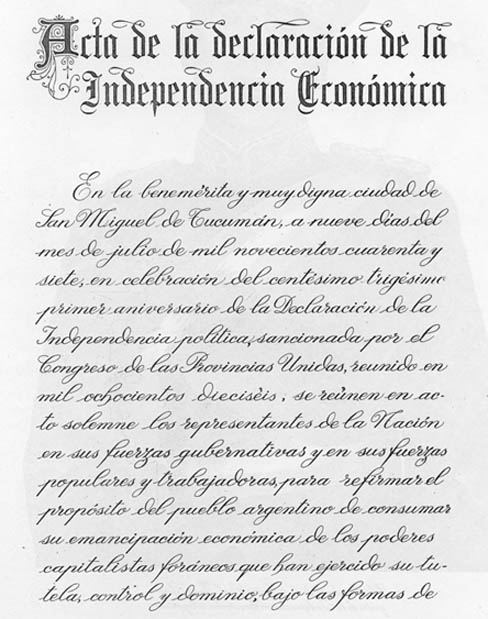 Acta de la declaración de la
Independencia Económica
En la benemérita y muy digna ciudad de
San Miguel de Tucumán, a nueve días del
mes de julio de mil novecientos cuarenta y
siete, en celebración del centésimo trigésimo
primer aniversario de la Declaración de la
Independencia política, sancionada por el
Congreso de las Provincias Unidas, reunido en
mil ochocientos dieciséis, se reúnen en ac-
to solemne los representantes de la Nación
en sus fuerzas gubernativas y en sus fuerzas
populares y trabajadoras, para refirmar el
propósito del pueblo argentino de consumar
su emancipación económica de los poderes
capitalistas foráneos que han ejercido su tu-
tela, control y dominio, bajo las formas de